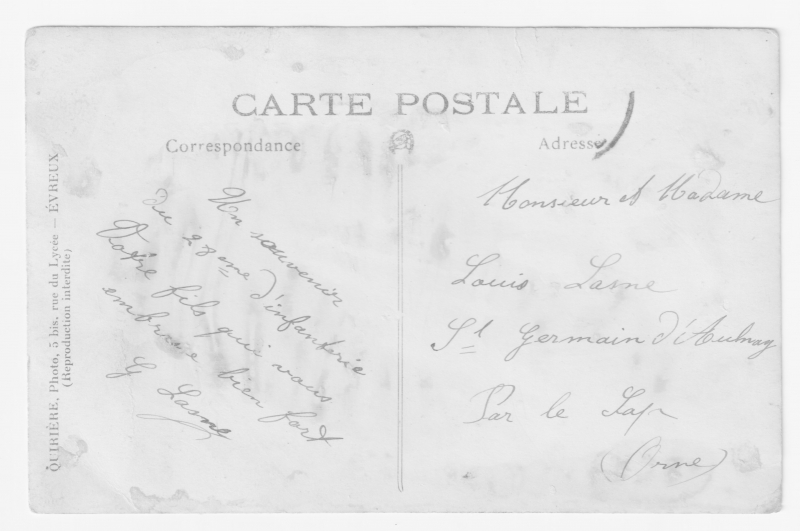 CARTE POSTALE
Correspondance
Adresse
Un souvenir
du 28eme d'infanterie
Votre fils qui vous
embrasse bien fort
G Lasne
Monsieur et Madame
Louis Lasne
St Germain d'Aulnay
Par le Sap
(Orne)
QUIRIÈRE, Photo, 5 bis, rue du Lycée — ÉVREUX
(Reproduction interdite)